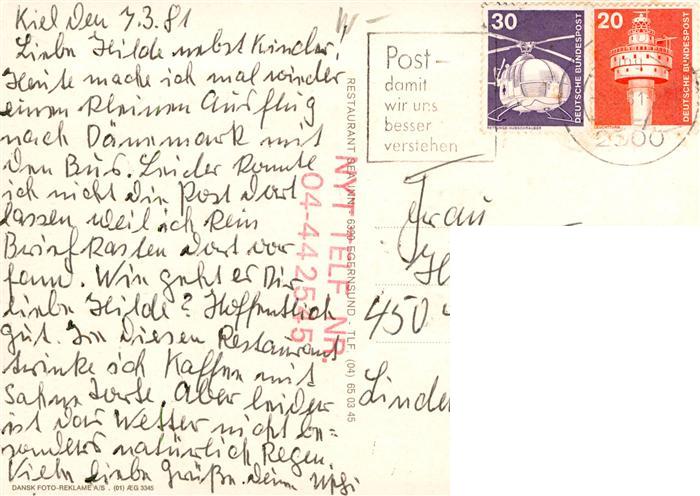 Kiel den 7.3.81
Liebe Hilde nebst Kinder!
Heute mache ich mal wieder
einen kleinen Ausflug
nach Dänemark mit
den Bus. Leider konnte
ich nicht die Post dort
lassen weil ich kein
Briefkasten dort vor
fand. Wie geht es Dir
liebe Hilde? Hoffentlich
gut. In diesen Restaurant
trinke ich Kaffee mit
Sahne Torte. Aber leider
ist das Wetter nicht be-
sonders natürlich Regen.
Viele liebe Grüße. Deine
DANSK FOTO-REKLAME A/S . (01) ÆG 3345
RESTAURANT 6320 EGERNSUND . TLF. (04) 65 03 45
NYT TELF NR.
04-442545
Post-
damit
wir uns
besser
verstehen
30
DEUTSCHE BUNDESPOST
20
DEUTSCHE BUNDESPOST
2300
Frau
450